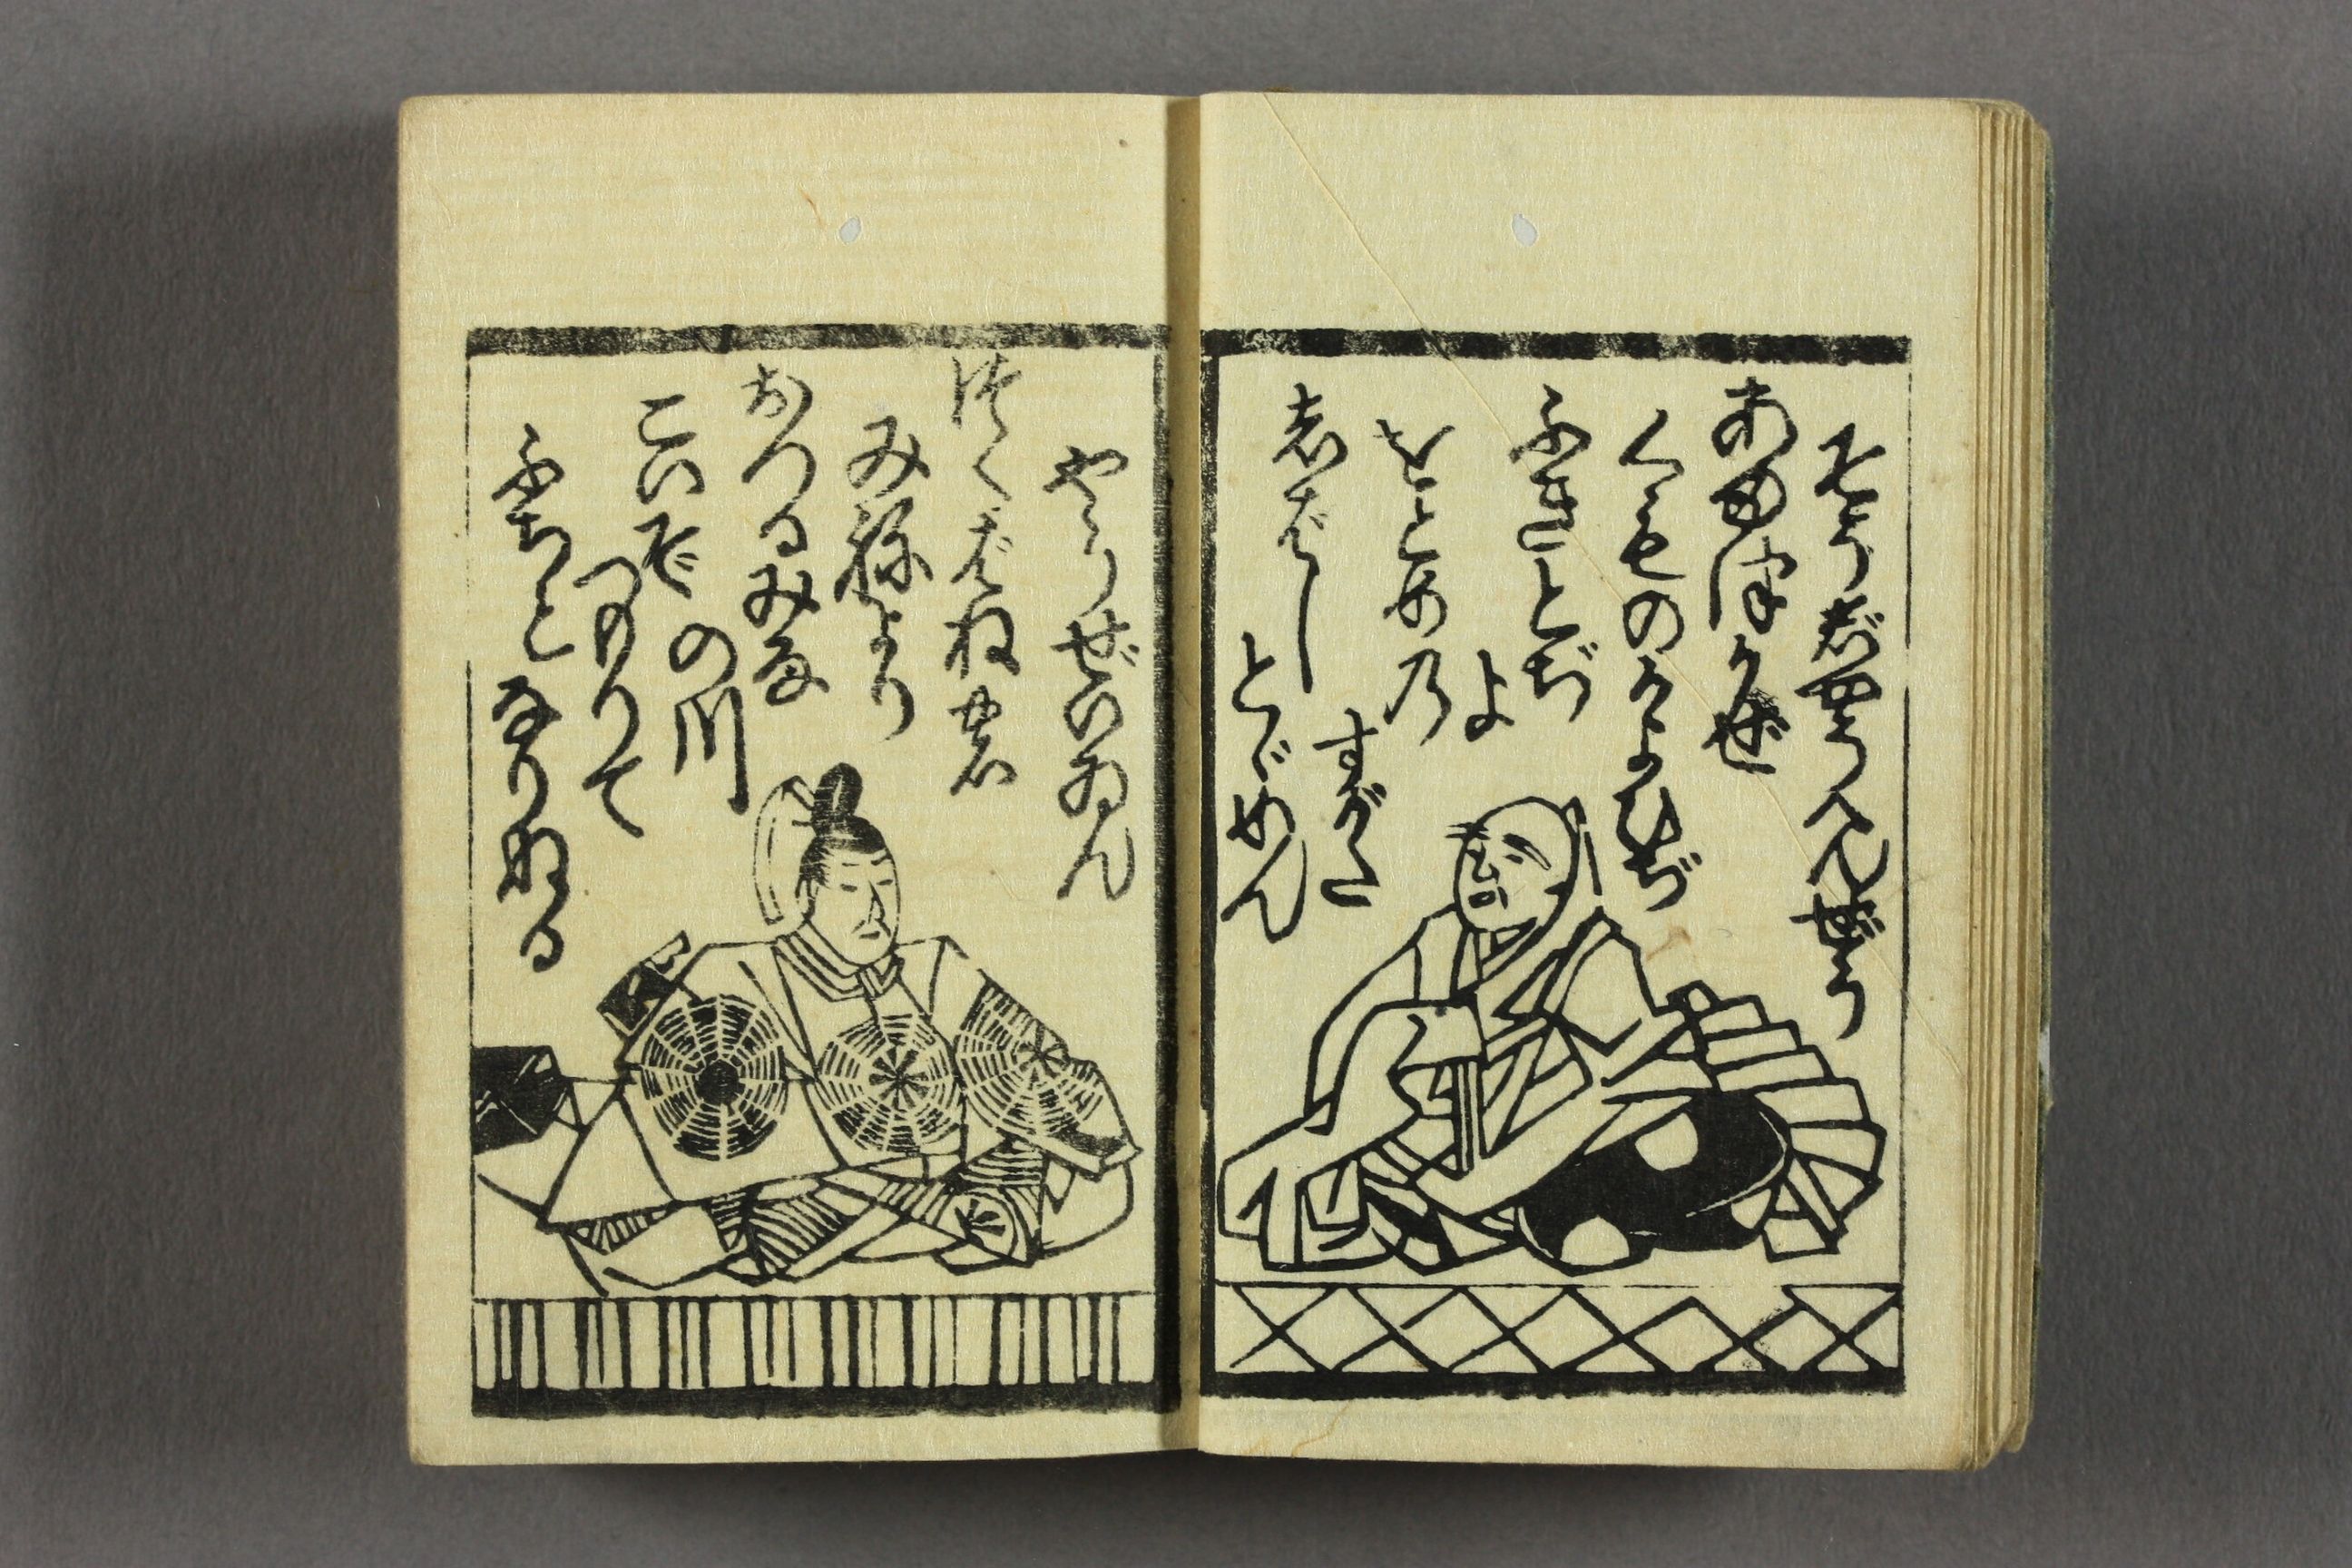 そうじやうへんぜう
あまつかぜ
くものかよひぢ
ふきとぢ
よ
をとめの
すがた
しばし
とゞめん
やうぜいゐん
つくばねの
みねより
おつるみな
の川
こひぞ
つもりて
ふちとなりぬる